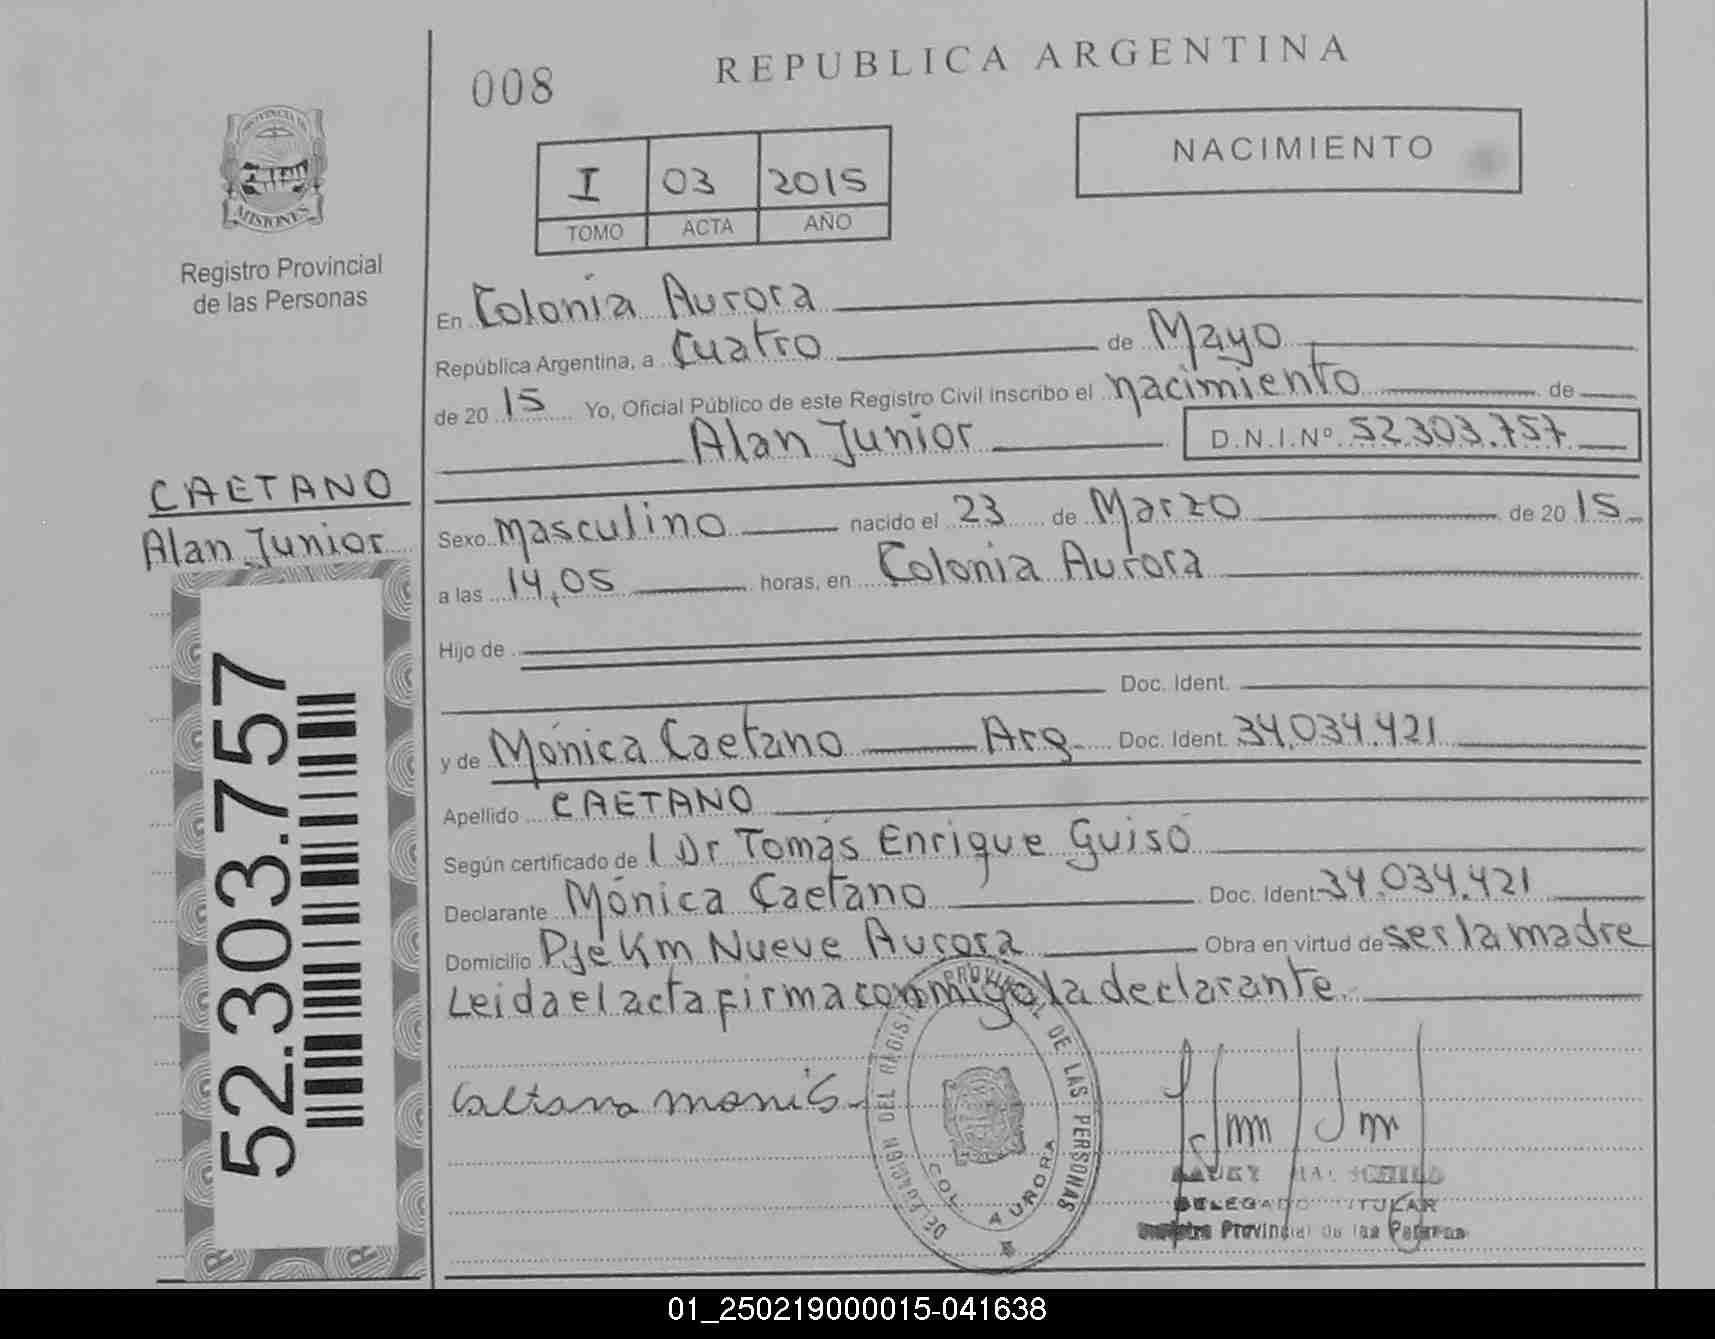 008
REPUBLICA ARGENTINA
NACIMIENTO
I 03 2015
TOMO ACTA AÑO
PROVINCIA DE
MISIONES
Registro Provincial
de las Personas
En Colonia Aurora
República Argentina, a Cuatro de Mayo
de 20 15 Yo, Oficial Público de este Registro Civil inscribo el nacimiento de
Alan Junior D.N.I.Nº 52.303.757
CAETANO
Alan Junior
52.303.757
Sexo Masculino nacido el 23 de Marzo de 20 15
a las 14,05 horas, en Colonia Aurora
Hijo de
Doc. Ident.
y de Mónica Caetano Arg. Doc. Ident. 34.034.421
Apellido CAETANO
Según certificado de l Dr Tomás Enrique Guiso
Declarante Mónica Caetano Doc. Ident. 34.034.421
Domicilio Pje Km Nueve Aurora Obra en virtud de ser la madre
Leida el acta firma conmigo la declarante
Caetano
DEL REGISTRO PROVINCIAL DE LAS PERSONAS
COL. AURORA
DELEGADO TITULAR
Registro Provincial de las Personas
01_250219000015-041638